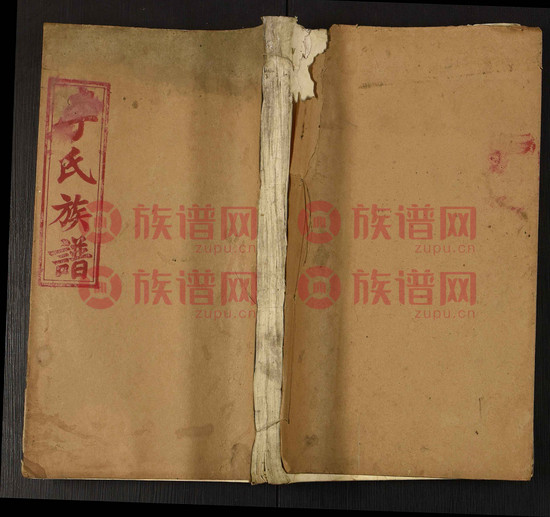 氏族譜
族谱网
zupu.cn
族谱网
zupu.cn
族谱网
zupu.cn
族谱网
zupu.cn